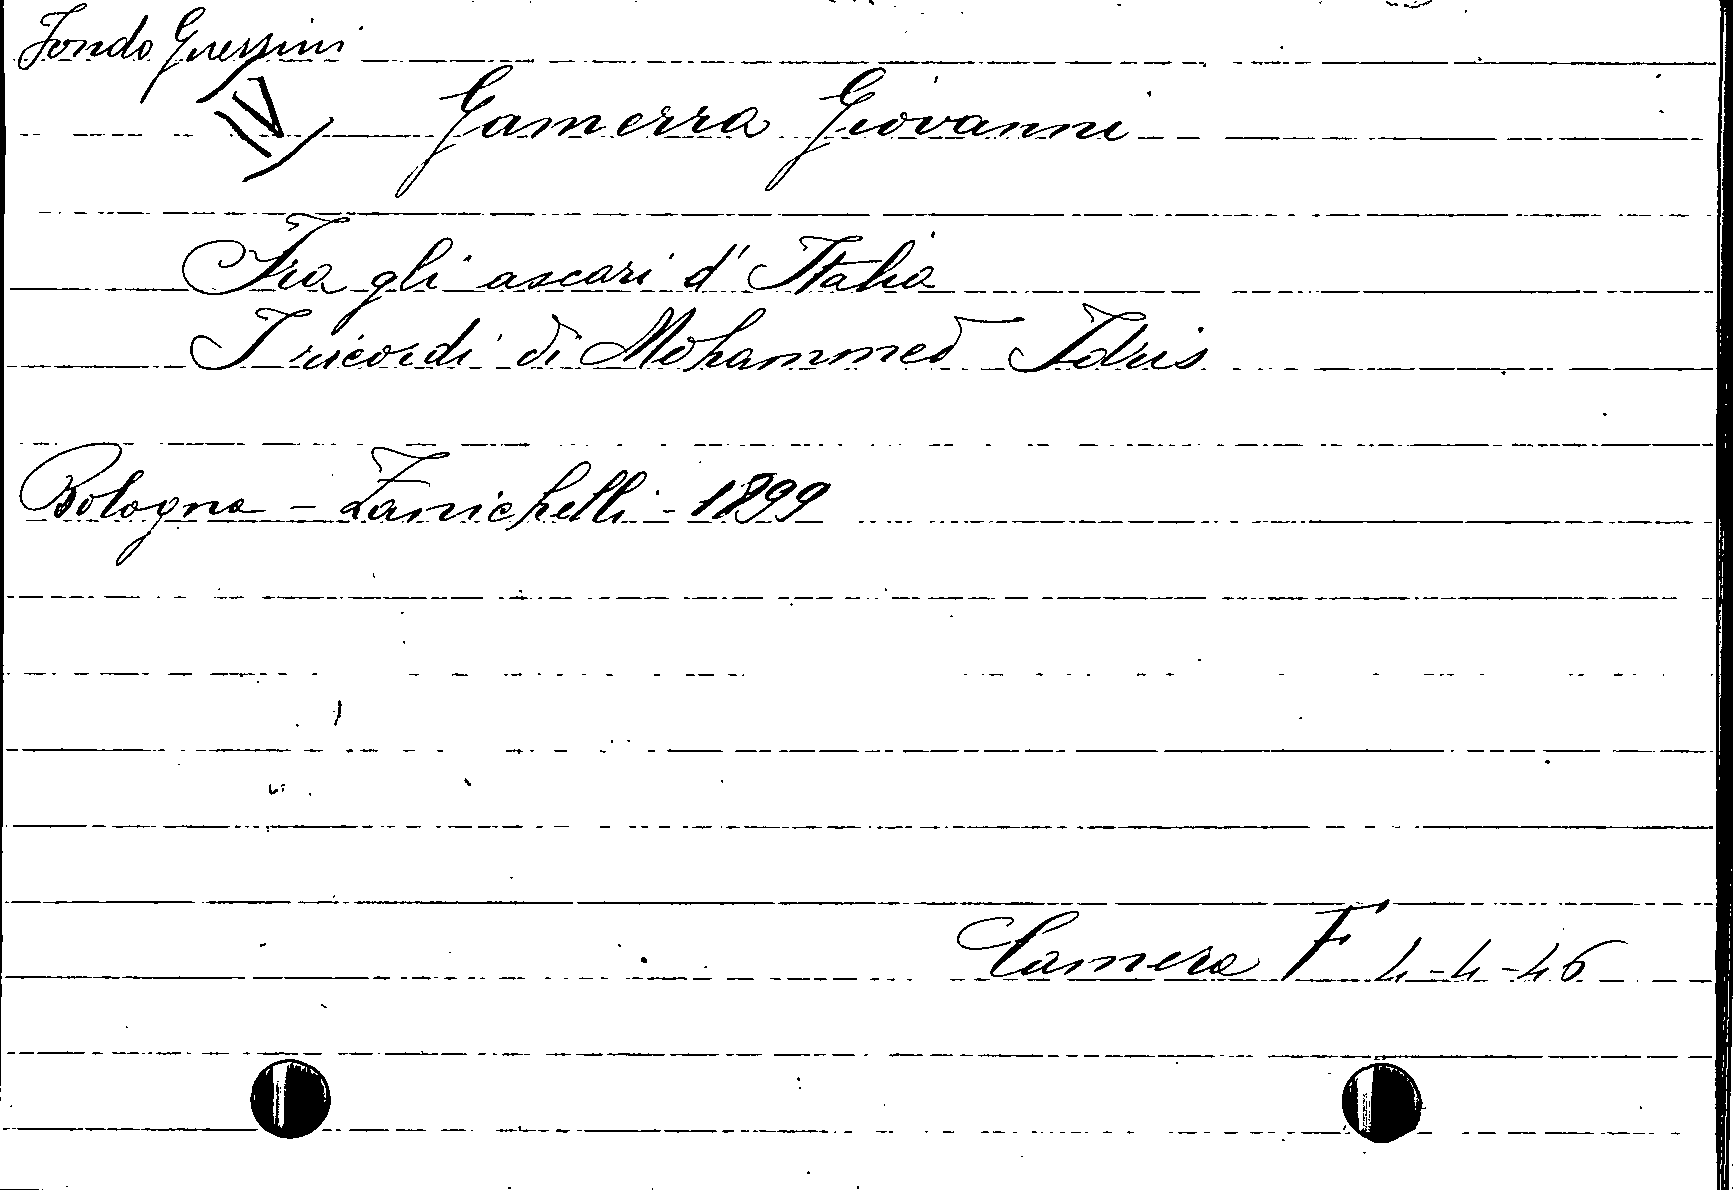 Fondo Guerrini
IV
Gamerra Giovanni
Fra gli ascari d'Italia
I ricordi di Mohammed Idris
Bologna - Zanichelli - 1899
Camera F 4-4-46